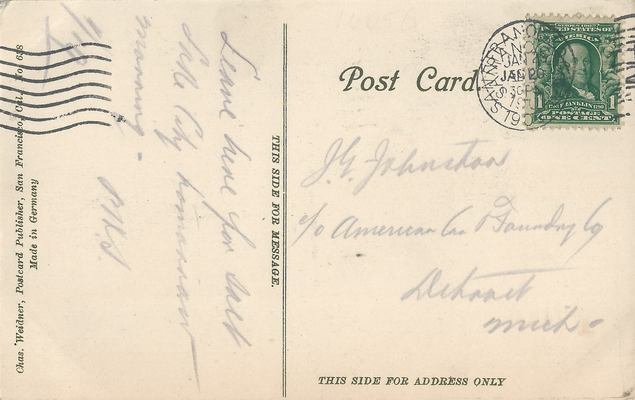 1/28
Leave here for Salt
Lake City tomorrow
morning -
THIS SIDE FOR MESSAGE.
Chas. Weidner, Postcard Publisher, San Francisco, Cal. No. 638
Made in Germany
Post Card
SAN FRANCISCO
JAN 28
SERIES 1902
UNITED STATES OF
AMERICA
1 FRANKLIN 1
POSTAGE
ONE CENT
J. G. Johnston
c/o American Car & Foundry Co
Detroit
Mich -
THIS SIDE FOR ADDRESS ONLY